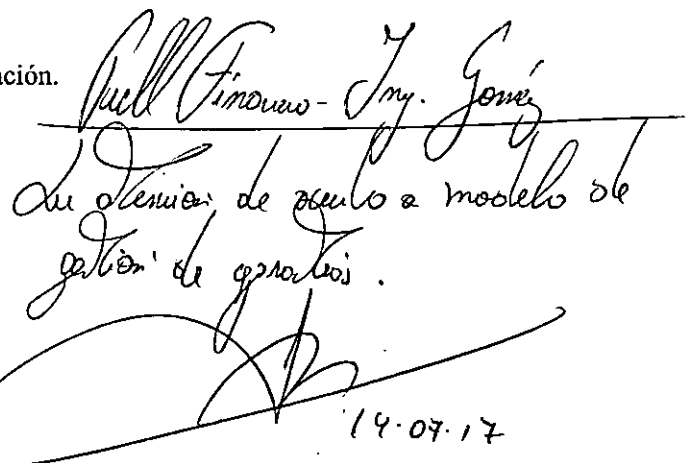 ación.
Financiero - Ing. Gómez
Su atención de acuerdo a modelo de
gestión de garantías.
14.07.17